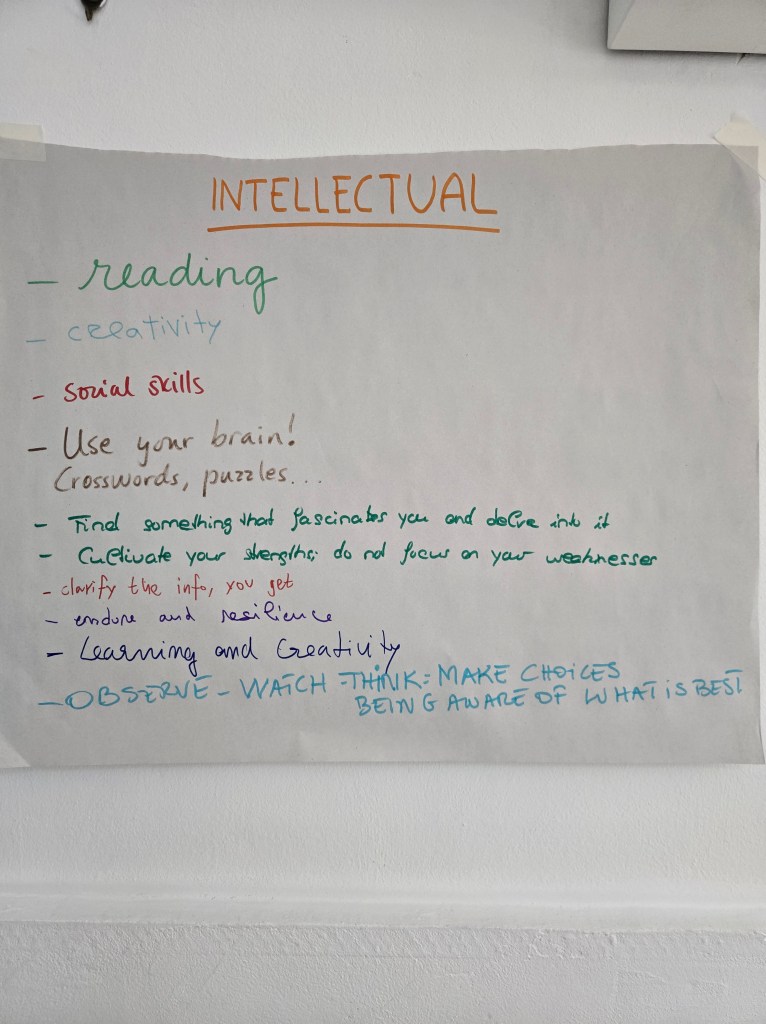 INTELLECTUAL
- reading
- creativity
- social skills
- Use your brain!
Crosswords, puzzles...
- Find something that fascinates you and delve into it
- Cultivate your strengths; do not focus on your weaknesses
- clarify the info, you get
- endure and resilience
- Learning and Creativity
- OBSERVE - WATCH - THINK = MAKE CHOICES
BEING AWARE OF WHAT IS BEST